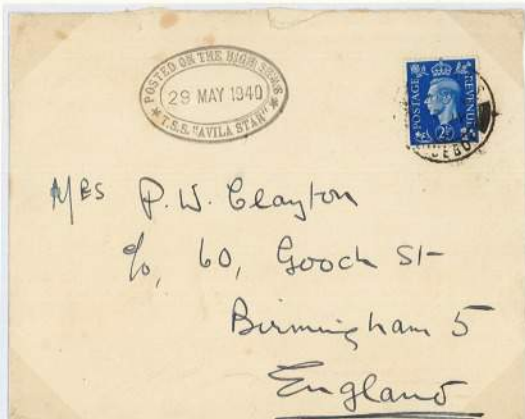 POSTED ON THE HIGH SEAS
29 MAY 1940
★ T.S.S. "AVILA STAR" ★
POSTAGE REVENUE
2½D
Mrs P. W. Clayton
c/o, 60, Gooch St
Birmingham 5
England